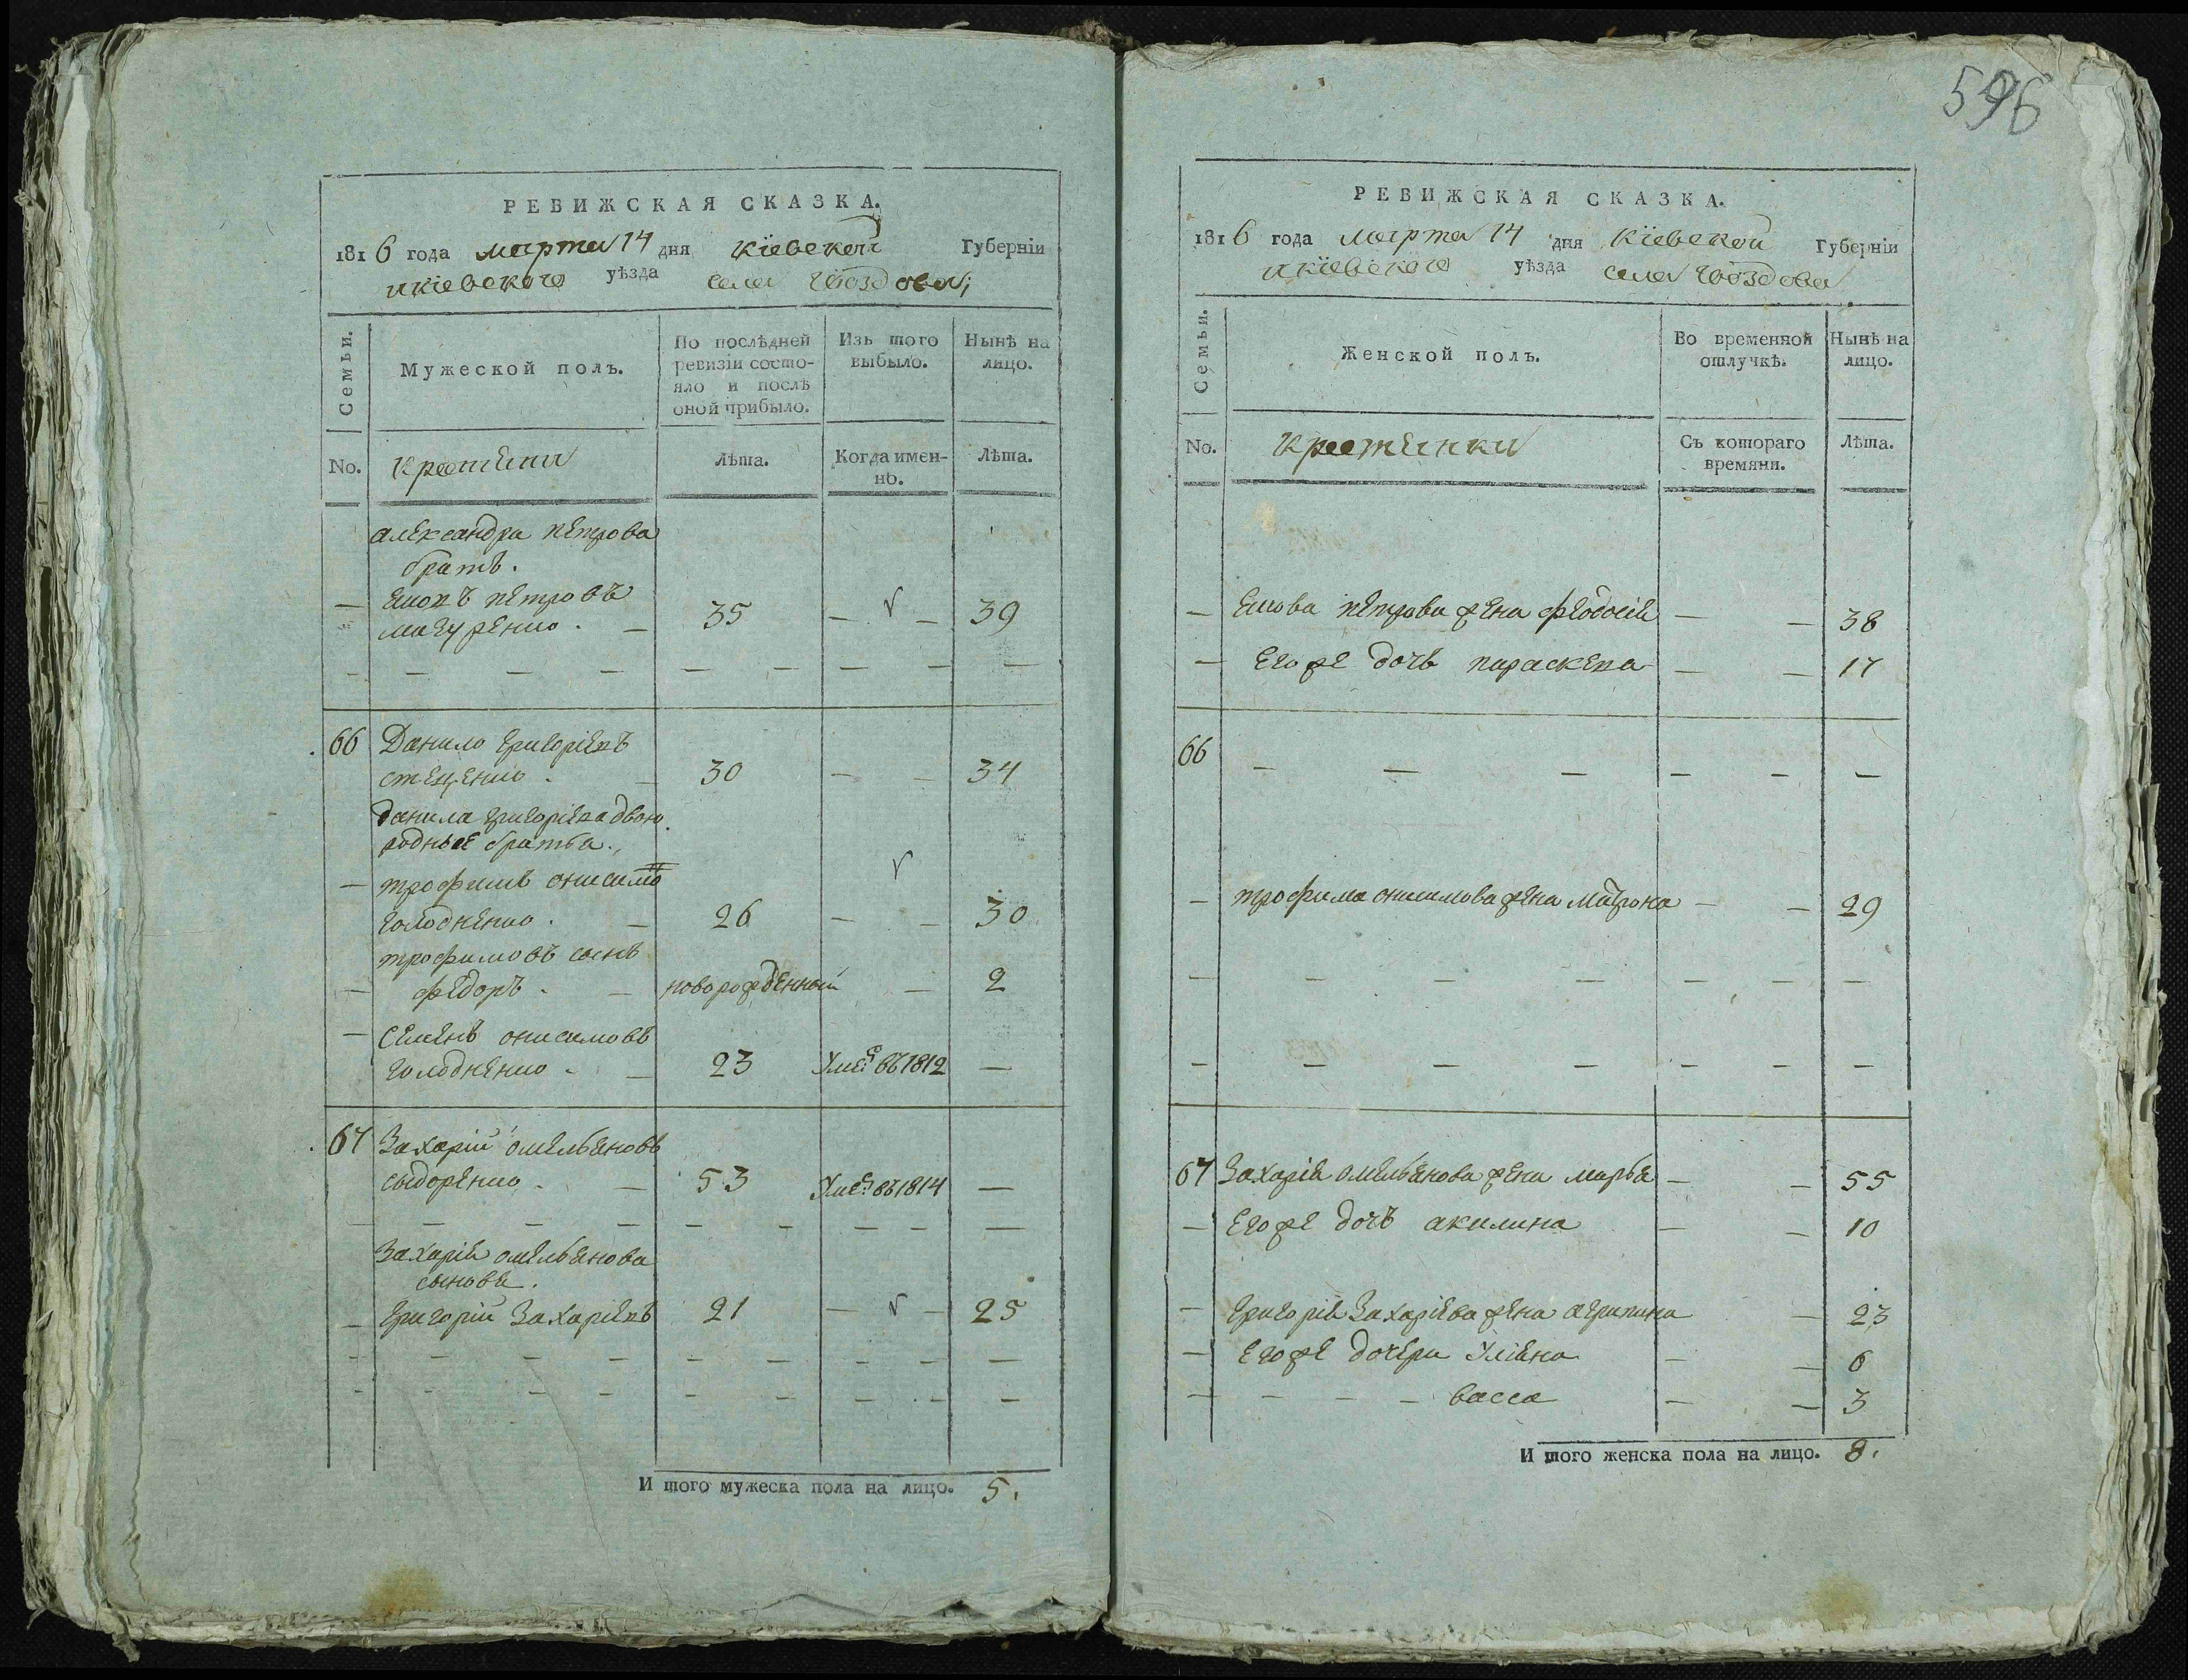 РЕВИЖСКАЯ СКАЗКА.
1816 года марта 14 дня Кіевской Губерніи
икіевского уѣзда села Гвоздова;
Семьи.
Мужеской полъ.
По послѣдней ревизіи состояло и послѣ оной прибыло.
Изъ того выбыло.
Нынѣ на лицо.
No.
Лѣта.
Когда именно.
Лѣта.
александра петрова
братъ.
— петровъ
— 35 — √ — 39
66 Данило григоріевъ
стеценко . — 30 — — 34
данила григоріева двою
родные братья.
— трофимъ онисимо √
голодненко . — 26 — — 30
трофимовъ сынъ
— федоръ . — новорожденный — 2
— Семенъ онисимовъ
голодненко . — 23 Умеръ въ 1812 —
67 Захарій омельяновъ
сыдоренко . — 53 Умеръ въ 1814 —
Захарія омельянова
сыновья.
— григорій Захаріевъ 21 — √ — 25
И того мужеска пола на лицо. 5.
596
РЕВИЖСКАЯ СКАЗКА.
1816 года марта 14 дня Кіевской Губерніи
икіевского уѣзда села Гвоздова
Семьи.
Женской полъ.
Во временной отлучкѣ.
Нынѣ на лицо.
No.
Съ котораго времяни.
Лѣта.
— петрова жена феодосія — — 38
— Егоже дочь параскева — — 17
66 — — — — — —
— трофима онисимова жена матрона — — 29
67 Захарія омельянова жена марья — — 55
— Егоже дочь акилина — — 10
— григорія Захаріева жена агрипина — 23
— Егоже дочери Уліяна — — 6
— — — — васса — — 3
И того женска пола на лицо. 8.